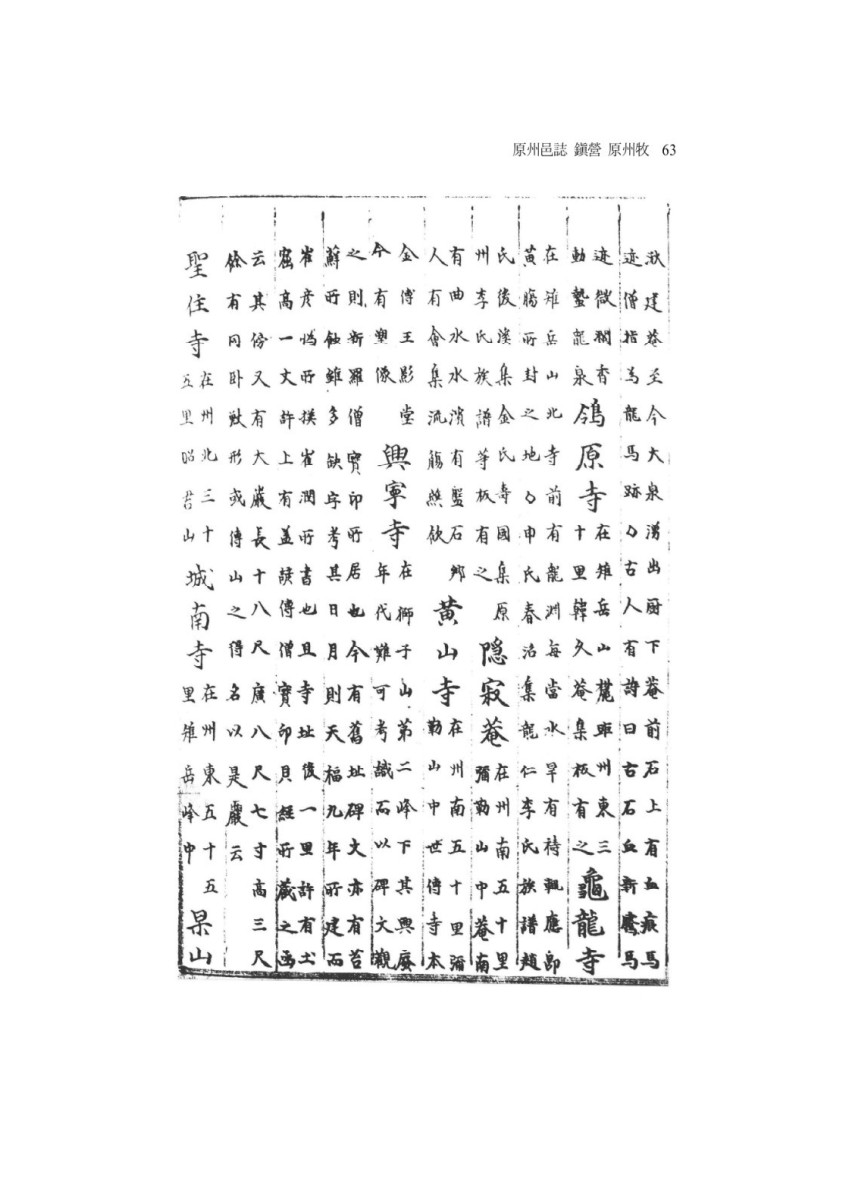 原州邑誌 鎭營 原州牧 63
狀建菴至今大泉湧出厨下菴前石上有血痕馬
迹僧指爲龍馬跡〻古人有詩曰古石血新騰馬
迹微澗香
動蟄龍泉
鴿原寺
在雉岳山麓距州東三
十里韓久菴集板有之
龜龍寺
在雉岳山北寺前有龍淵每當水旱有禱輒應卽
黄膓所封之地〻申氏春沼集龍仁李氏族譜趙
氏後溪集金氏壽國集原
州李氏族譜等板有之
隠寂菴
在州南五十里
彌勒山中菴南
有曲水水濱有盤石鄉
人有會集流觴燃飲
黄山寺
在州南五十里彌
勒山中世傳寺本
金傅王影堂
今有塑像
興寧寺
在獅子山第二峰下其興廢
年代難可考識而以碑文觀
之則新羅僧寶印所居也今有舊址碑文亦有苔
蘚所蝕雖多缺字考其日月則天福九年所建而
崔彦撝所撰崔潤所書也且寺址後一里許有土
窟高一丈許上有盖諺傳僧寶印貝經所藏之函
云其傍又有大巖長十八尺廣八尺七寸高三尺
餘有同卧獸形或傳山之得名以是巖云
聖住寺
在州北三十
五里昭君山
城南寺
在州東五十五
里雉岳峰中
杲山